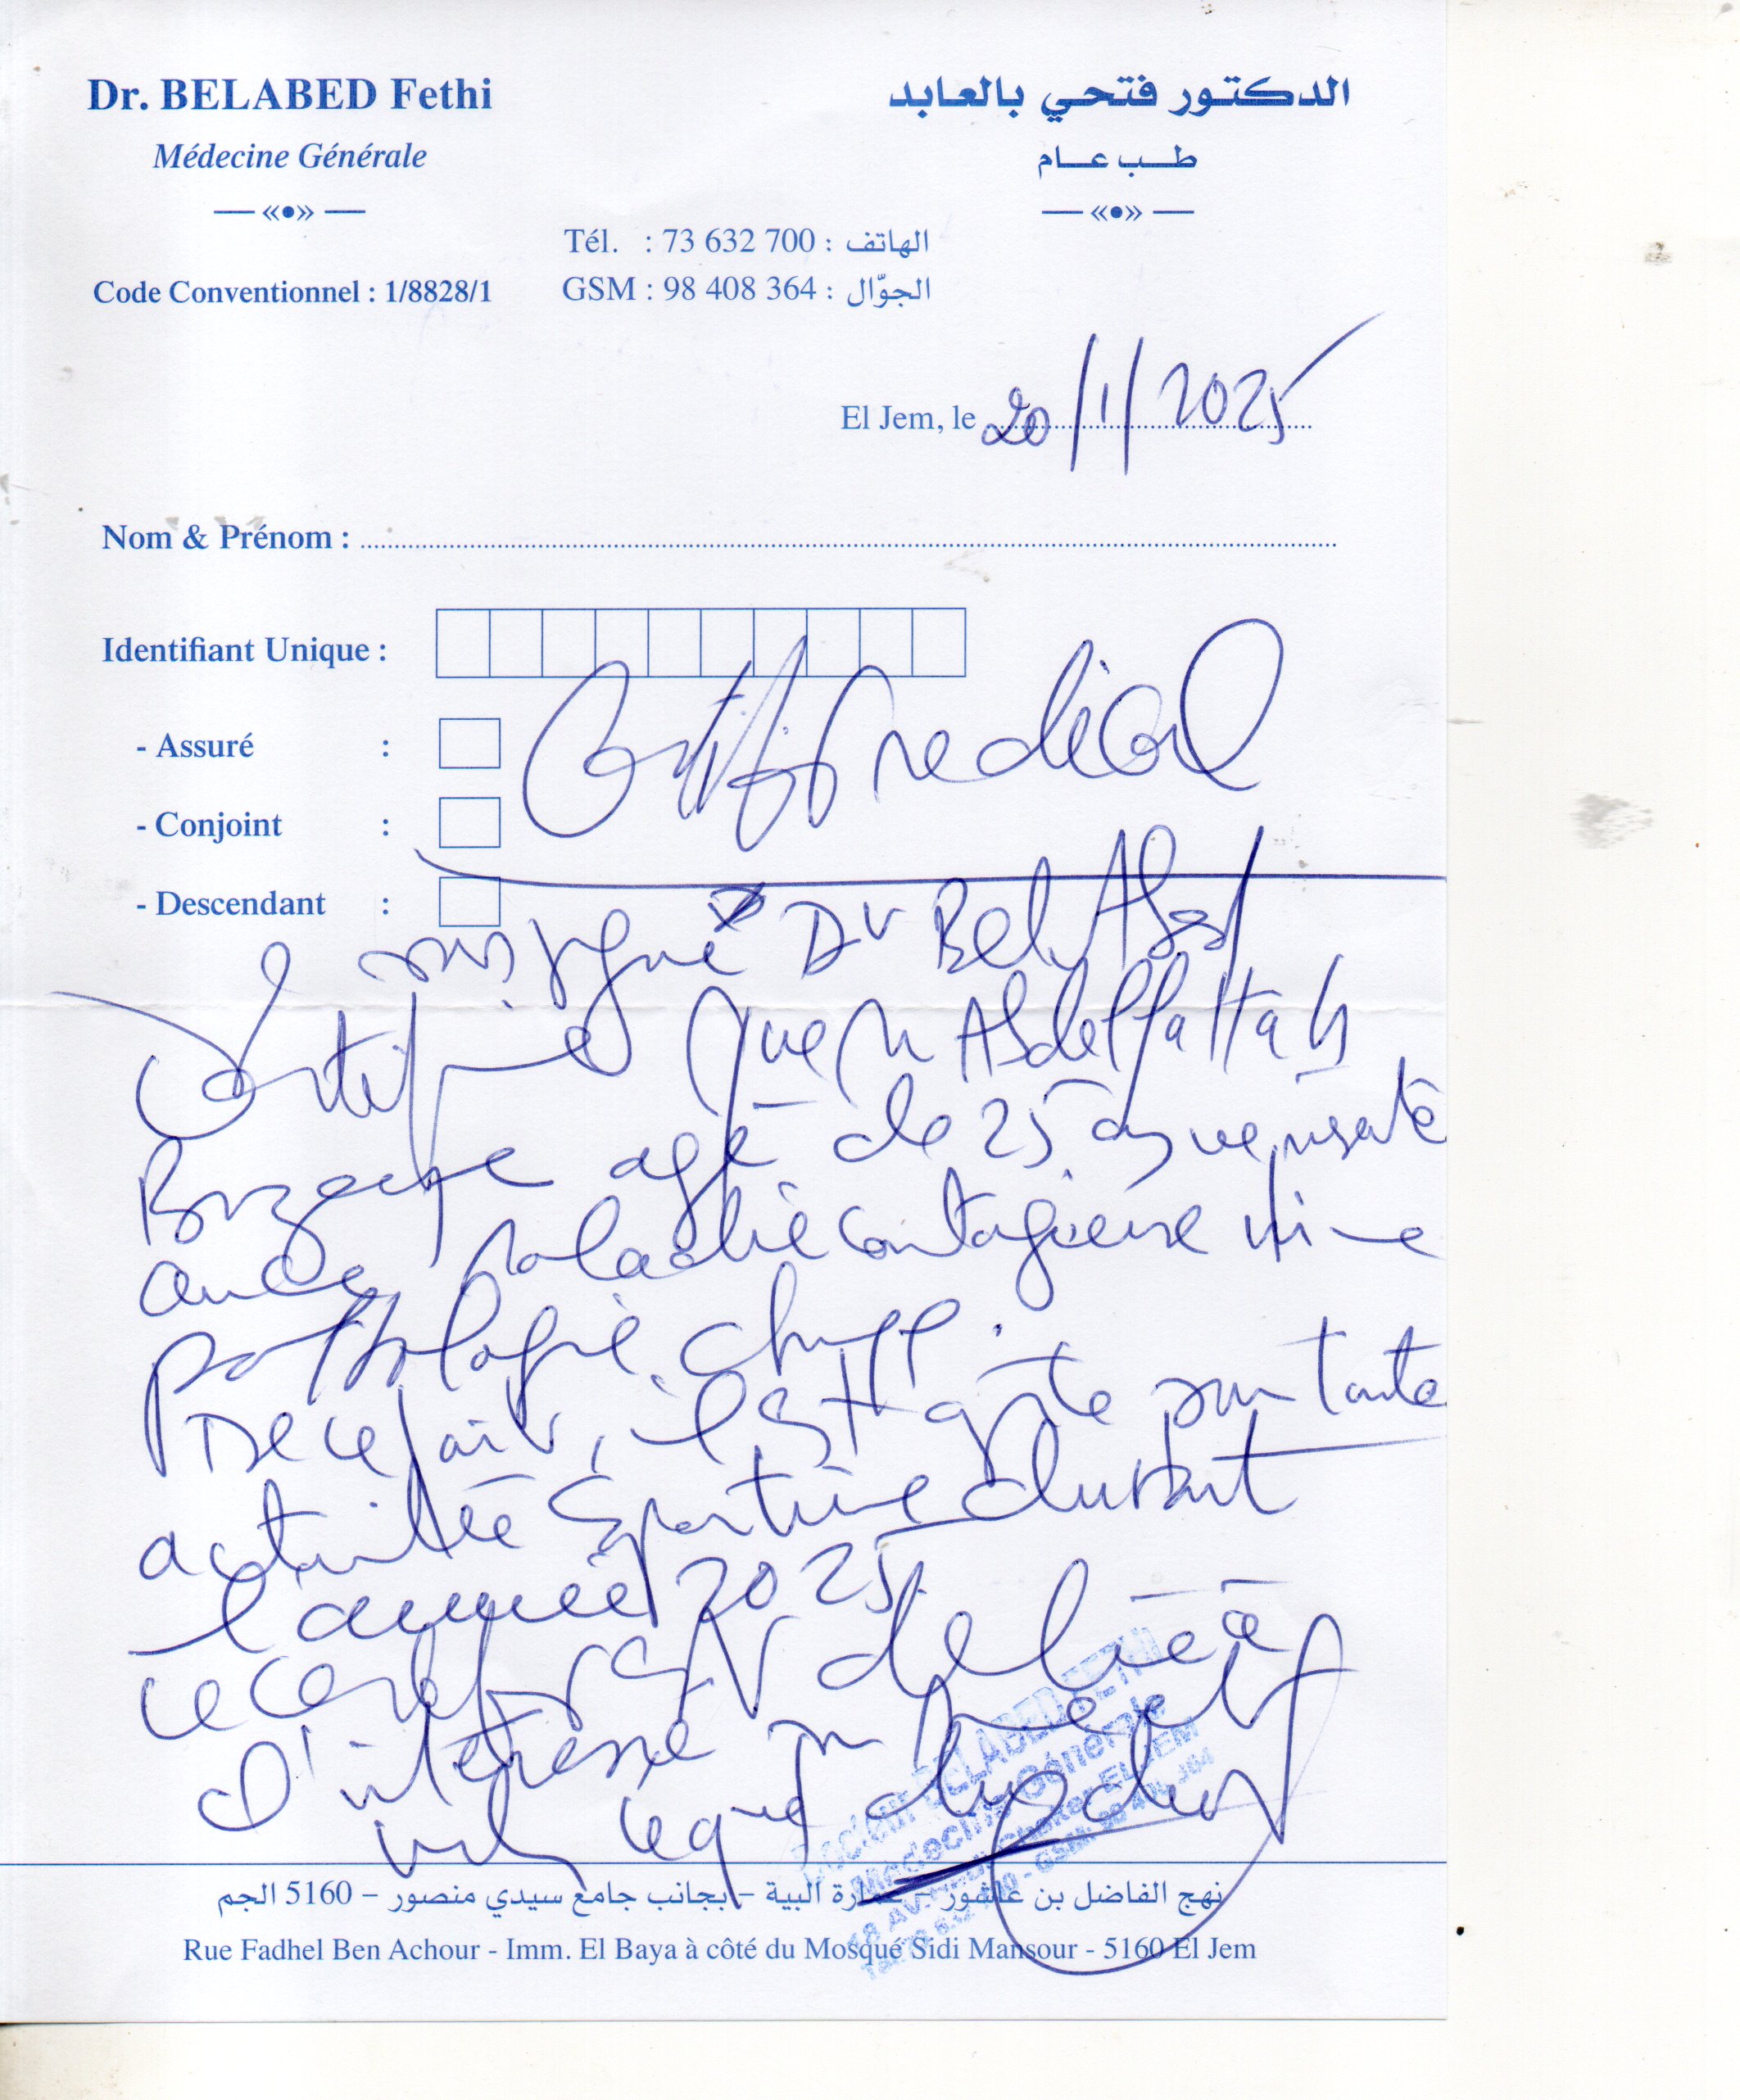 Dr. BELABED Fethi
الدكتور فتحي بالعابد
Médecine Générale
طب عام
Tél. : 73 632 700 : الهاتف
Code Conventionnel : 1/8828/1
GSM : 98 408 364 : الجوّال
El Jem, le 20/1/2025
Nom & Prénom :
Identifiant Unique :
- Assuré :
- Conjoint :
- Descendant :
Certif medical
soussigné Dr Bel Abed
Certifie que Mr Abdelfattah
agé de 25 ans ne présente
aucune maladie contagieuse ni une
pathologie
De ce fait, il est apte pour toute
activité sportive durant
l'année 2025
ce certif est delivré à
l'intéressé pour
valoir ce que de droit
Docteur BELABED FETHI
Médecine Générale
نهج الفاضل بن عاشور - عمارة البية - بجانب جامع سيدي منصور - 5160 الجم
Rue Fadhel Ben Achour - Imm. El Baya à côté du Mosqué Sidi Mansour - 5160 El Jem